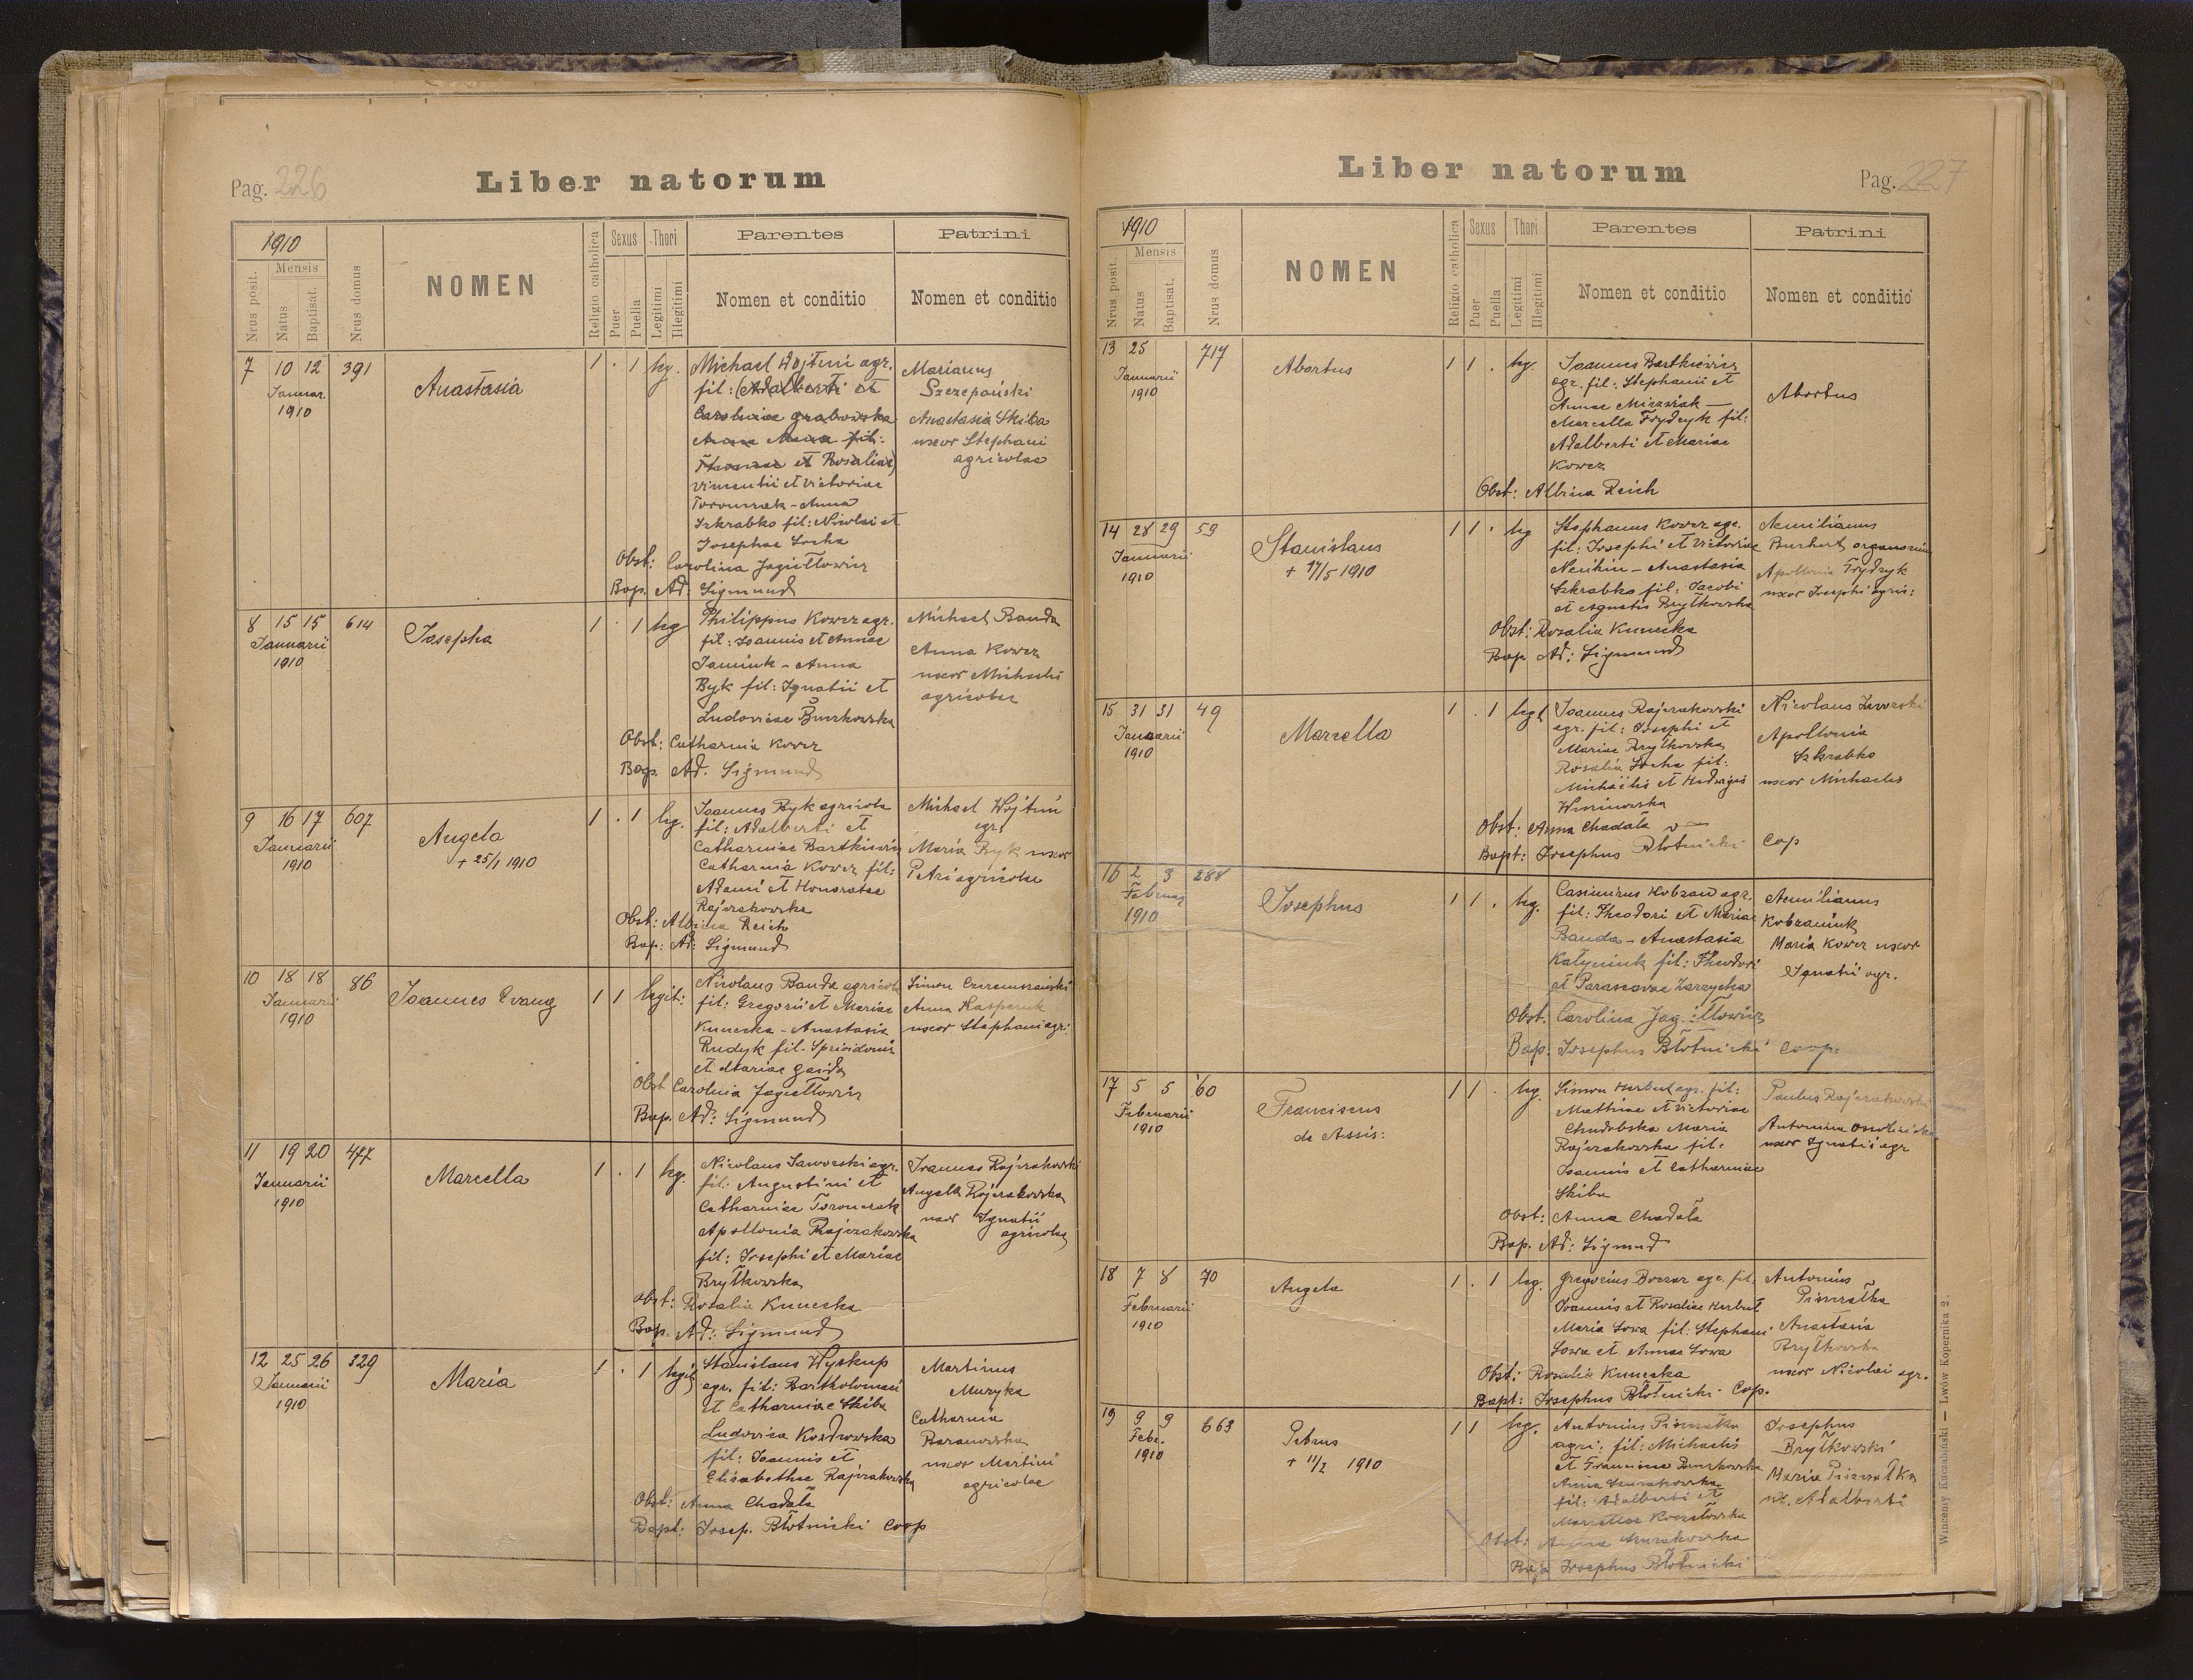 Pag. 226
Liber natorum
1910
Mensis
Nrus posit.
Natus
Baptisat.
Nrus domus
NOMEN
Religio catholica
Sexus
Puer
Puella
Thori
Legitimi
Illegitimi
Parentes
Nomen et conditio
Patrini
Nomen et conditio
7 10 12 391
Januar.
1910
Anastasia
1 . 1 leg.
Michael Wojtun agr.
fil: (Adalberti et
Carolinae Grabowska
fil:
Thomae et Rosaliae)
Vincentii et Victoriae
Toronczak - Anna
Szkrabko fil: Nicolai et
Josephae Socha
Obst: Carolina Jagiełłowicz
Bap. Ad: Sigmund
Marianus
Szczepański
Anastasia Skiba
uxor Stephani
agricolae
8 15 15 614
Januarii
1910
Josepha
1 . 1 leg
Philippus Kowcz agr.
fil: Joannis et Annae
Janiuk - Anna
Byk fil: Ignatii et
Ludovicae Burzkowska
Obst: Catharina Kowcz
Bap. Ad. Sigmund
Michael Banda
Anna Kowcz
uxor Michaelis
agricolae
9 16 17 607
Januarii
1910
Angela
+ 25/1 1910
1 . 1 leg.
Joannes Byk agricola
fil: Adalberti et
Catharinae Bartkiewicz
Catharina Kowcz fil:
Adami et Honoratae
Rajzakowska
Obst: Albina Reich
Bap: Ad: Sigmund
Michael Wojtun
agr.
Maria Byk uxor
Petri agricolae
10 18 18 86
Januarii
1910
Joannes Evang
1 1 legit:
Nicolaus Banda agricola
fil: Gregorii et Mariae
Kunecka - Anastasia
Rudyk fil. Spiridonis
et Mariae Gaida
Obst Carolina Jagiełłowicz
Bap. Ad: Sigmund
Simon Czeremszański
Anna Kasperuk
uxor Stephani agr:
11 19 20 477
Januarii
1910
Marcella
1 . 1 leg.
Nicolaus Jaworski agr.
fil: Augustini et
Catharinae Toronczak
Apollonia Rajzakowska
fil: Josephi et Mariae
Bryłkowska
Obst: Rosalia Kunecka
Bap. Ad: Sigmund
Joannes Rajzakowski
Angela Rajzakowska
uxor Ignatii
agricolae
12 25 26 329
Januarii
1910
Maria
1 . 1 legit
Stanislaus Wyskup
agr. fil: Bartholomaei
et Catharinae Skiba
Ludovica Kozdrowska
fil: Joannis et
Elisabethae Rajzakowska
Obst: Anna Chadała
Bapt: Josep. Błotnicki Coop
Martinus
Muzyka
Catharina
Baranowska
uxor Martini
agricolae
Liber natorum
Pag. 227
1910
Mensis
Nrus posit.
Natus
Baptisat.
Nrus domus
NOMEN
Religio catholica
Sexus
Puer
Puella
Thori
Legitimi
Illegitimi
Parentes
Nomen et conditio
Patrini
Nomen et conditio
13 25 717
Januarii
1910
Abortus
1 1 . leg.
Joannes Bartkiewicz
agr. fil: Stephanii et
Annae Mizewiak —
Marcella Frydryk fil:
Adalberti et Mariae
Kowcz
Obst: Albina Reich
Abortus
14 28 29 59
Januarii
1910
Stanislaus
+ 17/5 1910
1 1 . leg
Stephanus Kowcz agr.
fil: Josephi et Victoriae
- Anastasia
Szkrabko fil: Jacobi
et Agnetis Bryłkowska
Obst: Rosalia Kunecka
Bap. Ad: Sigmund
Aemilianus
Apollonia Frydryk
uxor Josephi agric:
15 31 31 49
Januarii
1910
Marcella
1 . 1 leg
Joannes Rajzakowski
agr. fil: Josephi et
Mariae Bryłkowska
Rosalia Socha fil:
Michaelis et Hedwigis
Wiszniowska
Obst: Anna Chadała
Bapt: Josephus Błotnicki Cop
Nicolaus Jaworski
Apollonia
Szkrabko
uxor Michaelis
16 2 3 288
Februar
1910
Josephus
1 1 . leg.
Casimirus Kobzan agr.
fil: Theodori et Mariae
Banda - Anastasia
Katyniuk fil: Theodori
et Parascevae Zarzycka
Obst: Carolina Jagiełłowicz
Bap: Josephus Błotnicki coop.
Aemilianus
Kobzaniuk
Maria Kowcz uxor
Ignatii agr.
17 5 5 60
Februarii
1910
Franciscus
de Assis:
1 1 . leg.
Simon Herbut agr. fil:
Mathiae et Victoriae
Chudobska Maria
Rajzakowska fil:
Joannis et Catharinae
Skiba
Obst: Anna Chadała
Bap. Ad: Sigmund
Paulus Rajzakowski
Antonina Ossolińska
uxor Ignatii agr
18 7 8 70
Februarii
1910
Angela
1 . 1 leg.
Gregorius Boczar agr. fil:
Joannis et Rosaliae Herbut
Maria Sowa fil: Stephani
Sowa et Annae Sowa
Obst: Rosalia Kunecka
Bapt: Josephus Błotnicki Cop.
Antonius
Piszczałka
Anastasia
Bryłkowska
uxor Nicolai agr.
19 9 9 663
Febr.
1910
Petrus
+ 11/2 1910
1 1 leg.
Antonius Piszczałka
agri: fil: Michaelis
et Franciscae Burzkowska
Anna
fil: Adalberti et
Marcellae Kozłowska
Obst: Anna
Bap Josephus Błotnicki
Josephus
Bryłkowski
Maria Piszczałka
ux. Adalberti
Wincenty Kuczabiński — Lwów Kopernika 2.